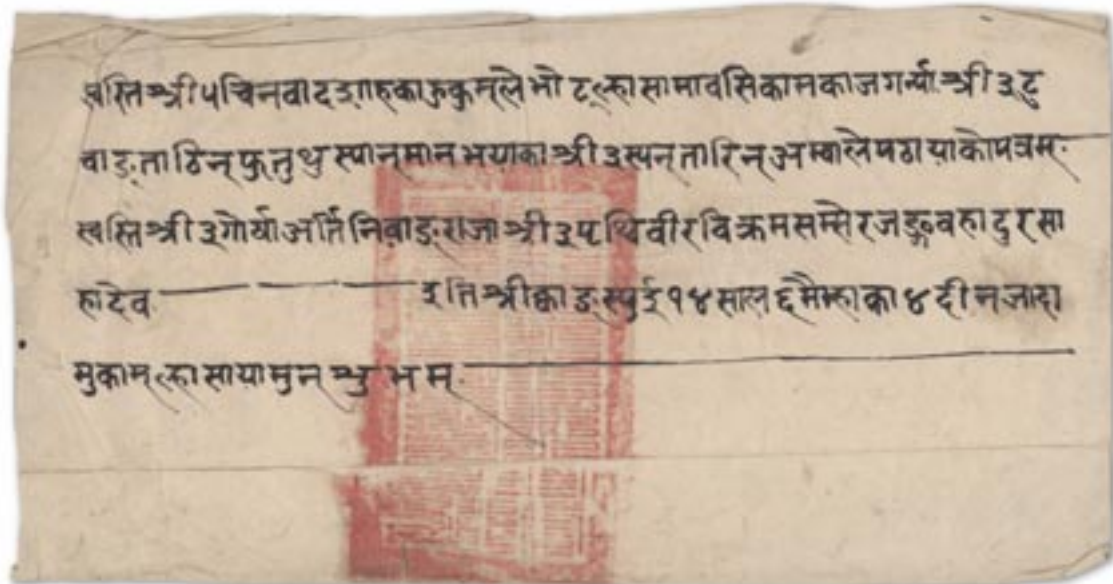 स्वस्तिश्री५चिनवादङ्गाहकाहुकुम्ले भोट ल्हासामा वसिकामकाज गर्न्या श्री३टु
वाङ्ताठिन्फुन्तुथुस्यान्मान भयाका श्री३स्यन्तारिन् अम्वाले पठायाको पत्रम्‌
स्वस्तिश्री३गोर्या अर्तिनि वाङ राजा श्री३पृथिवीरविक्रमसम्सेरजङ्गवहादुरसा
हादेव ——— इतिश्री क्वाङस्युई १४ साल ६ मैम्हाका ४ दीन जादा
मुकाम् ल्हासा यामुन् शुभम्‌